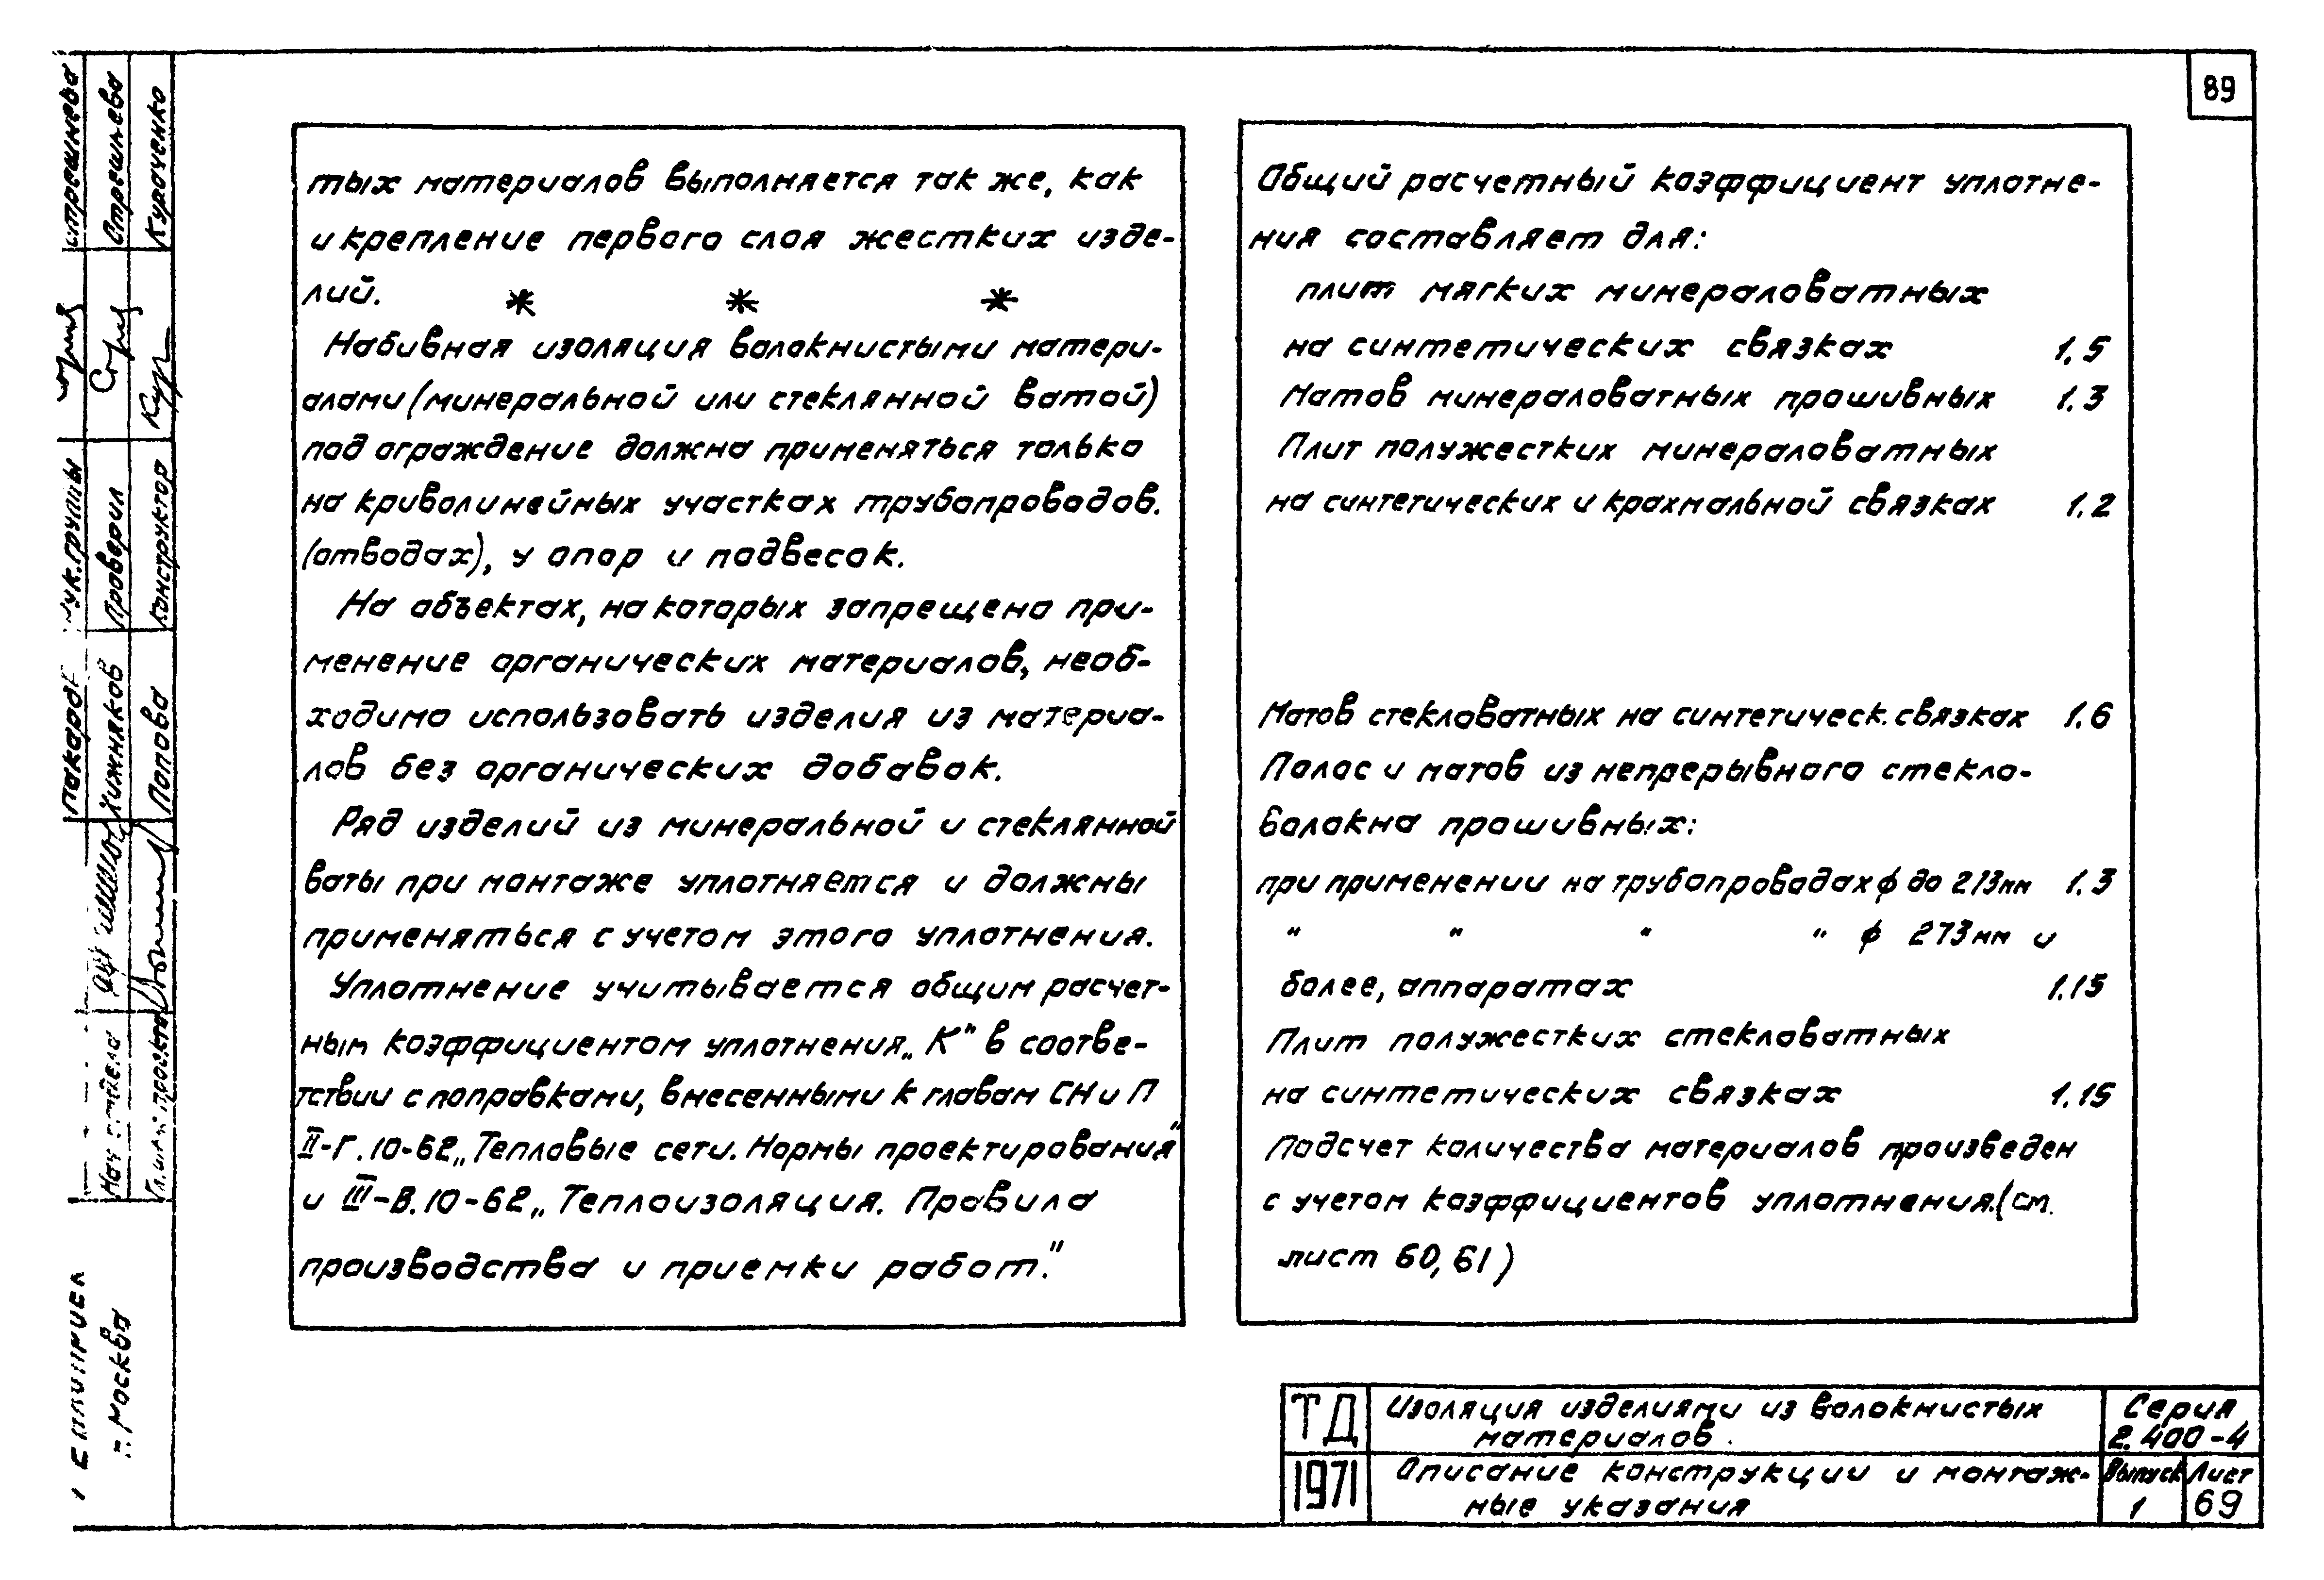 89
тых материалов выполняется так же, как
и крепление первого слоя жестких изде-
лий.
* * *
Набивная изоляция волокнистыми матери-
алами (минеральной или стеклянной ватой)
под ограждение должна применяться только
на криволинейных участках трубопроводов.
(отводах), у опор и подвесок.
На объектах, на которых запрещено при-
менение органических материалов, необ-
ходимо использовать изделия из материа-
лов без органических добавок.
Ряд изделий из минеральной и стеклянной
ваты при монтаже уплотняется и должны
применяться с учетом этого уплотнения.
Уплотнение учитывается общим расчет-
ным коэффициентом уплотнения „К" в соотве-
тствии с поправками, внесенными к главам СН и П
II-Г.10-62 „Тепловые сети. Нормы проектирования"
и III-В.10-62 „Теплоизоляция. Правила
производства и приемки работ."
Общий расчетный коэффициент уплотне-
ния составляет для:
плит мягких минераловатных
на синтетических связках 1.5
Матов минераловатных прошивных 1.3
Плит полужестких минераловатных
на синтетических и крахмальной связках 1.2
Матов стекловатных на синтетическ. связках 1.6
Полос и матов из непрерывного стекло-
волокна прошивных:
при применении на трубопроводах ф до 213мм 1.3
" " " " ф 273мм и
более, аппаратах 1.15
Плит полужестких стекловатных
на синтетических связках 1.15
Подсчет количества материалов произведен
с учетом коэффициентов уплотнения.(см.
лист 60, 61)
ТД
1971
Изоляция изделиями из волокнистых
материалов.
Описание конструкции и монтаж-
ные указания
Серия
2.400-4
Выпуск
1
Лист
69
Стрешнева
Стрешнева
Кураченко
Рук. группы
Проверил
Конструктор
Хижняков
Попова
Нач. отдела
Гл. инж. проекта
г. Москва